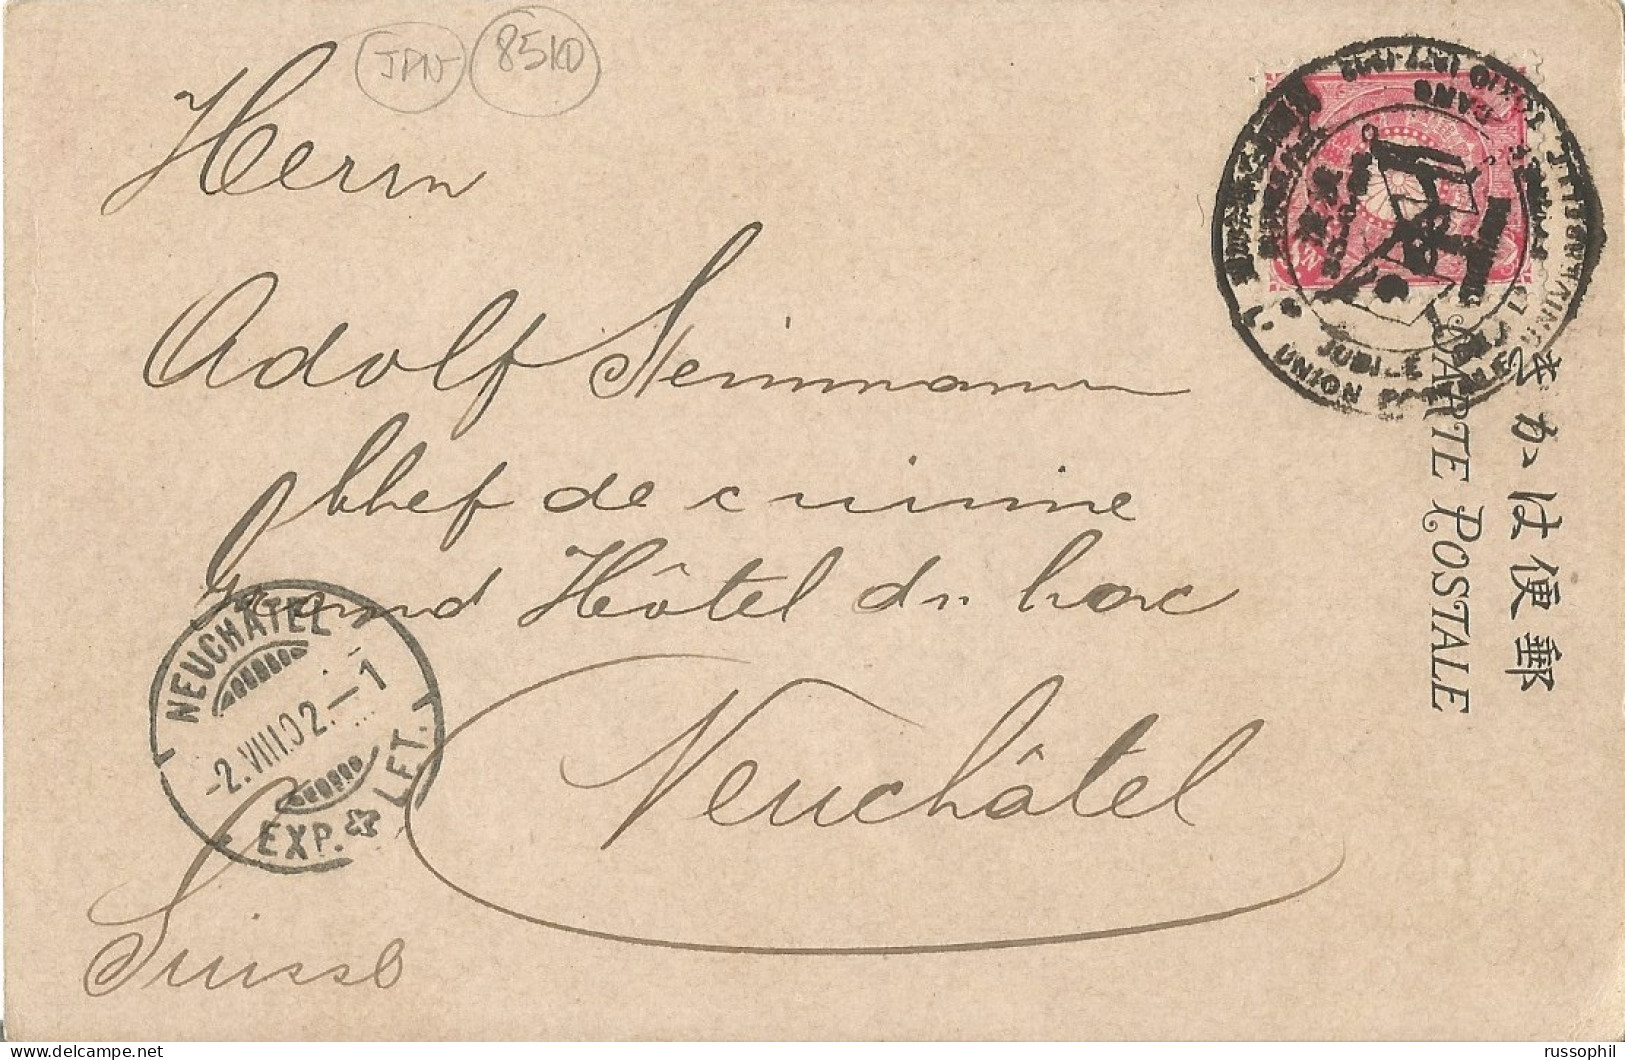 JPN 85KD
Herrn
Adolf Steinmann
Chef de cuisine
Grand Hôtel du Lac
Neuchâtel
Suisse
NEUCHÂTEL
-2.VIII.02.-1
EXP. LET.
郵便はかき
CARTE POSTALE
TOKIO 1877-1902
JUBILÉ
UNION POSTALE UNIVERSELLE
russophil